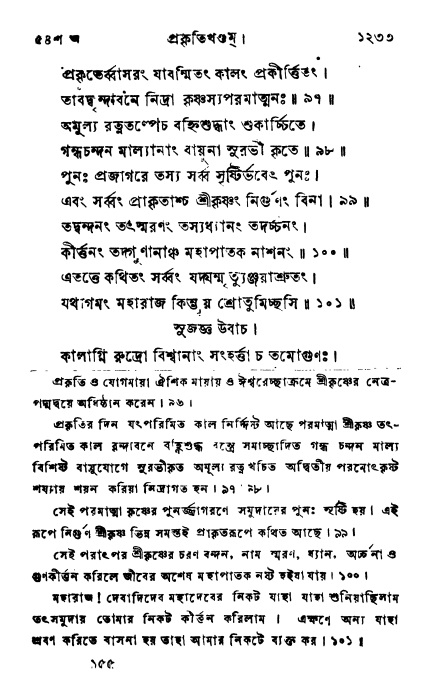 ৫৪শ অ প্রকৃতিখণ্ডম্। ১২৩৩
প্রকৃতের্ব্বাসরং যাবন্মিতং কালং প্রকীর্ত্তিতং।
তাবদ্বৃন্দাবনে নিদ্রা কৃষ্ণস্যপরমাত্মনঃ॥ ৯৭॥
অমূল্য রত্নতল্পেচ বহ্নিশুদ্ধাং শুকার্চ্চিতে।
গন্ধচন্দন মাল্যানাং বায়ুনা সুরভী কৃতে॥ ৯৮॥
পুনঃ প্রজাগরে তস্য সর্ব্ব সৃষ্টির্ভবেৎ পুনঃ।
এবং সর্ব্বং প্রাকৃতাশ্চ শ্রীকৃষ্ণং নির্গুণং বিনা। ৯৯॥
তদ্বন্দনং তৎস্মরণং তস্যধ্যানং তদর্চ্চনং।
কীর্ত্তনং তদ্গুণানাঞ্চ মহাপাতক নাশনং॥ ১০০॥
এতত্তে কথিতং সর্ব্বং যদ্যন্মৃত্যুঞ্জয়াশ্রুতং।
যথাগমং মহারাজ কিম্ভূয় শ্রোতুমিচ্ছসি॥ ১০১॥
সুজজ্ঞ উবাচ।
কালাগ্নি রুদ্রো বিশ্বানাং সংহর্ত্তা চ তমোগুণঃ।
প্রকৃতি ও যোগমায়া ঐশিক মায়ায় ও ঈশ্বরেচ্ছাক্রমে শ্রীকৃষ্ণের নেত্র-
পদ্মদ্বয়ে অধিষ্ঠান করেন। ৯৬।
প্রকৃতির দিন যৎপরিমিত কাল নির্দ্দিষ্ট আছে পরমাত্মা শ্রীকৃষ্ণ তৎ-
পরিমিত কাল বৃন্দাবনে বহ্নিশুদ্ধ বস্ত্রে সমাচ্ছাদিত গন্ধ চন্দন মাল্য
বিশিষ্ট বায়ুযোগে সুরভীকৃত অমূল্য রত্ন খচিত অদ্বিতীয় পরমোৎকৃষ্ট
শয্যায় শয়ন করিয়া নিদ্রাগত হন। ৯৭ ৯৮।
সেই পরমাত্মা কৃষ্ণের পুনর্জ্জাগরণে সমুদায়ের পুনঃ সৃষ্টি হয়। এই
রূপে নির্গুণ শ্রীকৃষ্ণ ভিন্ন সমস্তই প্রাকৃতরূপে কথিত আছে। ৯৯।
সেই পরাৎপর শ্রীকৃষ্ণের চরণ বন্দন, নাম স্মরণ, ধ্যান, অর্চ্চনা ও
গুণকীর্ত্তন করিলে জীবের অশেষ মহাপাতক নষ্ট হইয়া যায়। ১০০।
মহারাজ! দেবাদিদেব মহাদেবের নিকট যাহা যাহা শুনিয়াছিলাম
তৎসমুদায় তোমার নিকট কীর্ত্তন করিলাম। এক্ষণে অন্য যাহা
শ্রবণ করিতে বাসনা হয় তাহা আমার নিকটে ব্যক্ত কর। ১০১॥
১৫৫